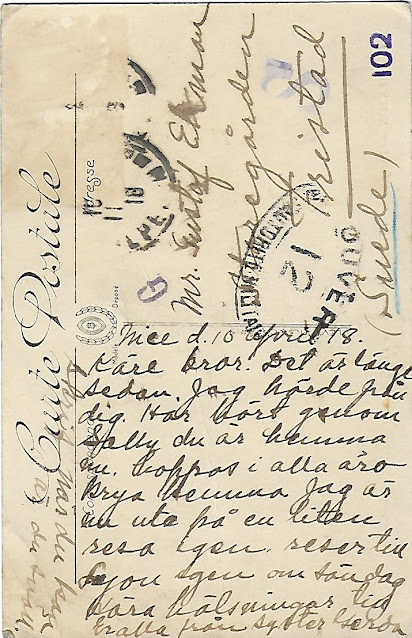 Carte Postale
Adresse
102
Mr. Gustaf Ekman
Storegården
Fristad
(Suede)
OUVERT
12
Nice d. 10 april 18.
Käre bror. Det är länge
sedan. Jag hörde från
dig. Har hört genom
du är hemma
nu. hoppas i alla äro
krya hemma. Jag är
nu ute på en liten
resa igen. reser till
Lyon igen om söndag
kära hälsningar till
Er alla från syster Gerda
Skriv när du kan